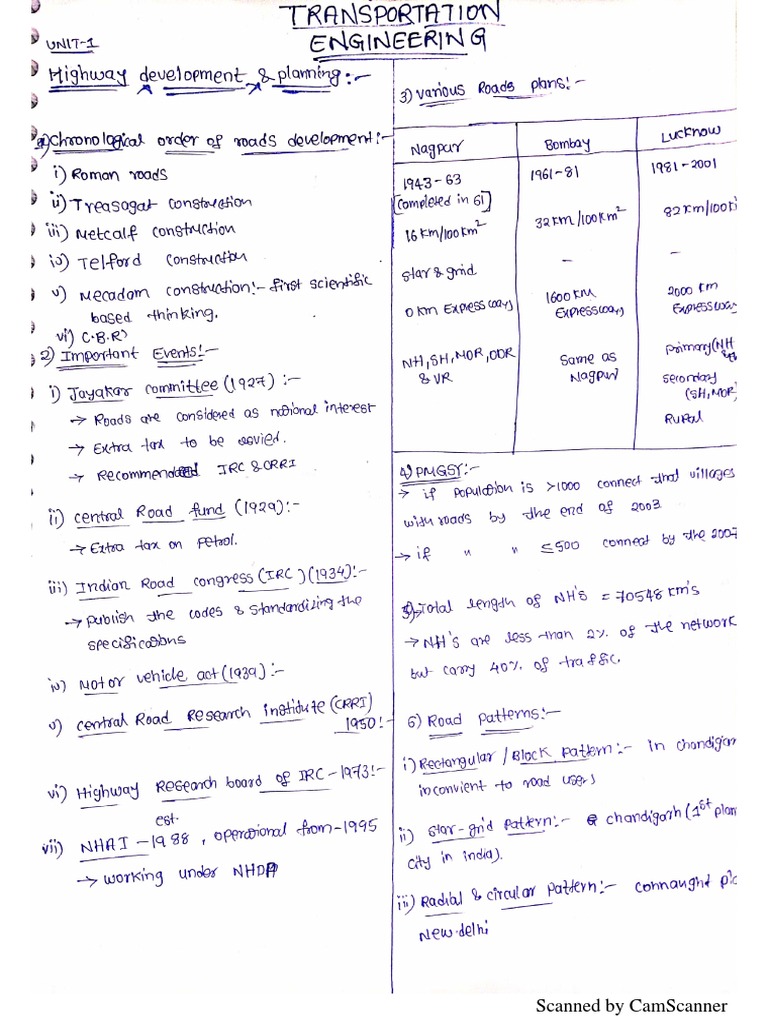 TRANSPORTATION
ENGINEERING
UNIT-1
Highway development & planning:-
1) Chronological order of roads development:-
i) Roman roads
ii) Treasagat construction
iii) Metcalf construction
iv) Telford construction
v) Mecadam construction:- first scientific
based thinking.
vi) C.B.R)
2) Important Events:-
i) Jayakar committee (1927) :-
→ Roads are considered as national interest
→ Extra tax to be
→ Recommended IRC & CRRI
ii) central Road fund (1929):-
→ Extra tax on Petrol.
iii) Indian Road congress (IRC) (1934):-
→ publish the codes & standardizing the
specifications
iv) Motor vehicle act (1939):-
v) central Road Research institute (CRRI)
1950:-
vi) Highway Research board of IRC - 1973:-
est.
vii) NHAI - 1988, operational from - 1995
→ working under NHDP
3) Various Roads plans:-
Nagpur Bombay Lucknow
1943-63 1961-81 1981-2001
[completed in 61]
16 km/100km² 32 km/100km² 82 km/100k
star & grid - -
0 km Expressways 1600 km Expressways 2000 km Expressway
NH, SH, MDR, ODR & VR
same as Nagpur
primary (NH &
secondary (SH, MDR)
Rural
4) PMGSY:-
→ if Population is >1000 connect that villages
with roads by the end of 2003
→ if " " ≤500 connect by the 2007
5) Total length of NH's = 70548 km's
→ NH's are less than 2% of the network
but carry 40% of traffic.
6) Road patterns:-
i) Rectangular / Block pattern:- in chandigar
inconvient to road users
ii) star-grid pattern:- chandigarh (1st plan
city in india).
iii) Radial & circular pattern:- connaught pla
New-delhi
Scanned by CamScanner